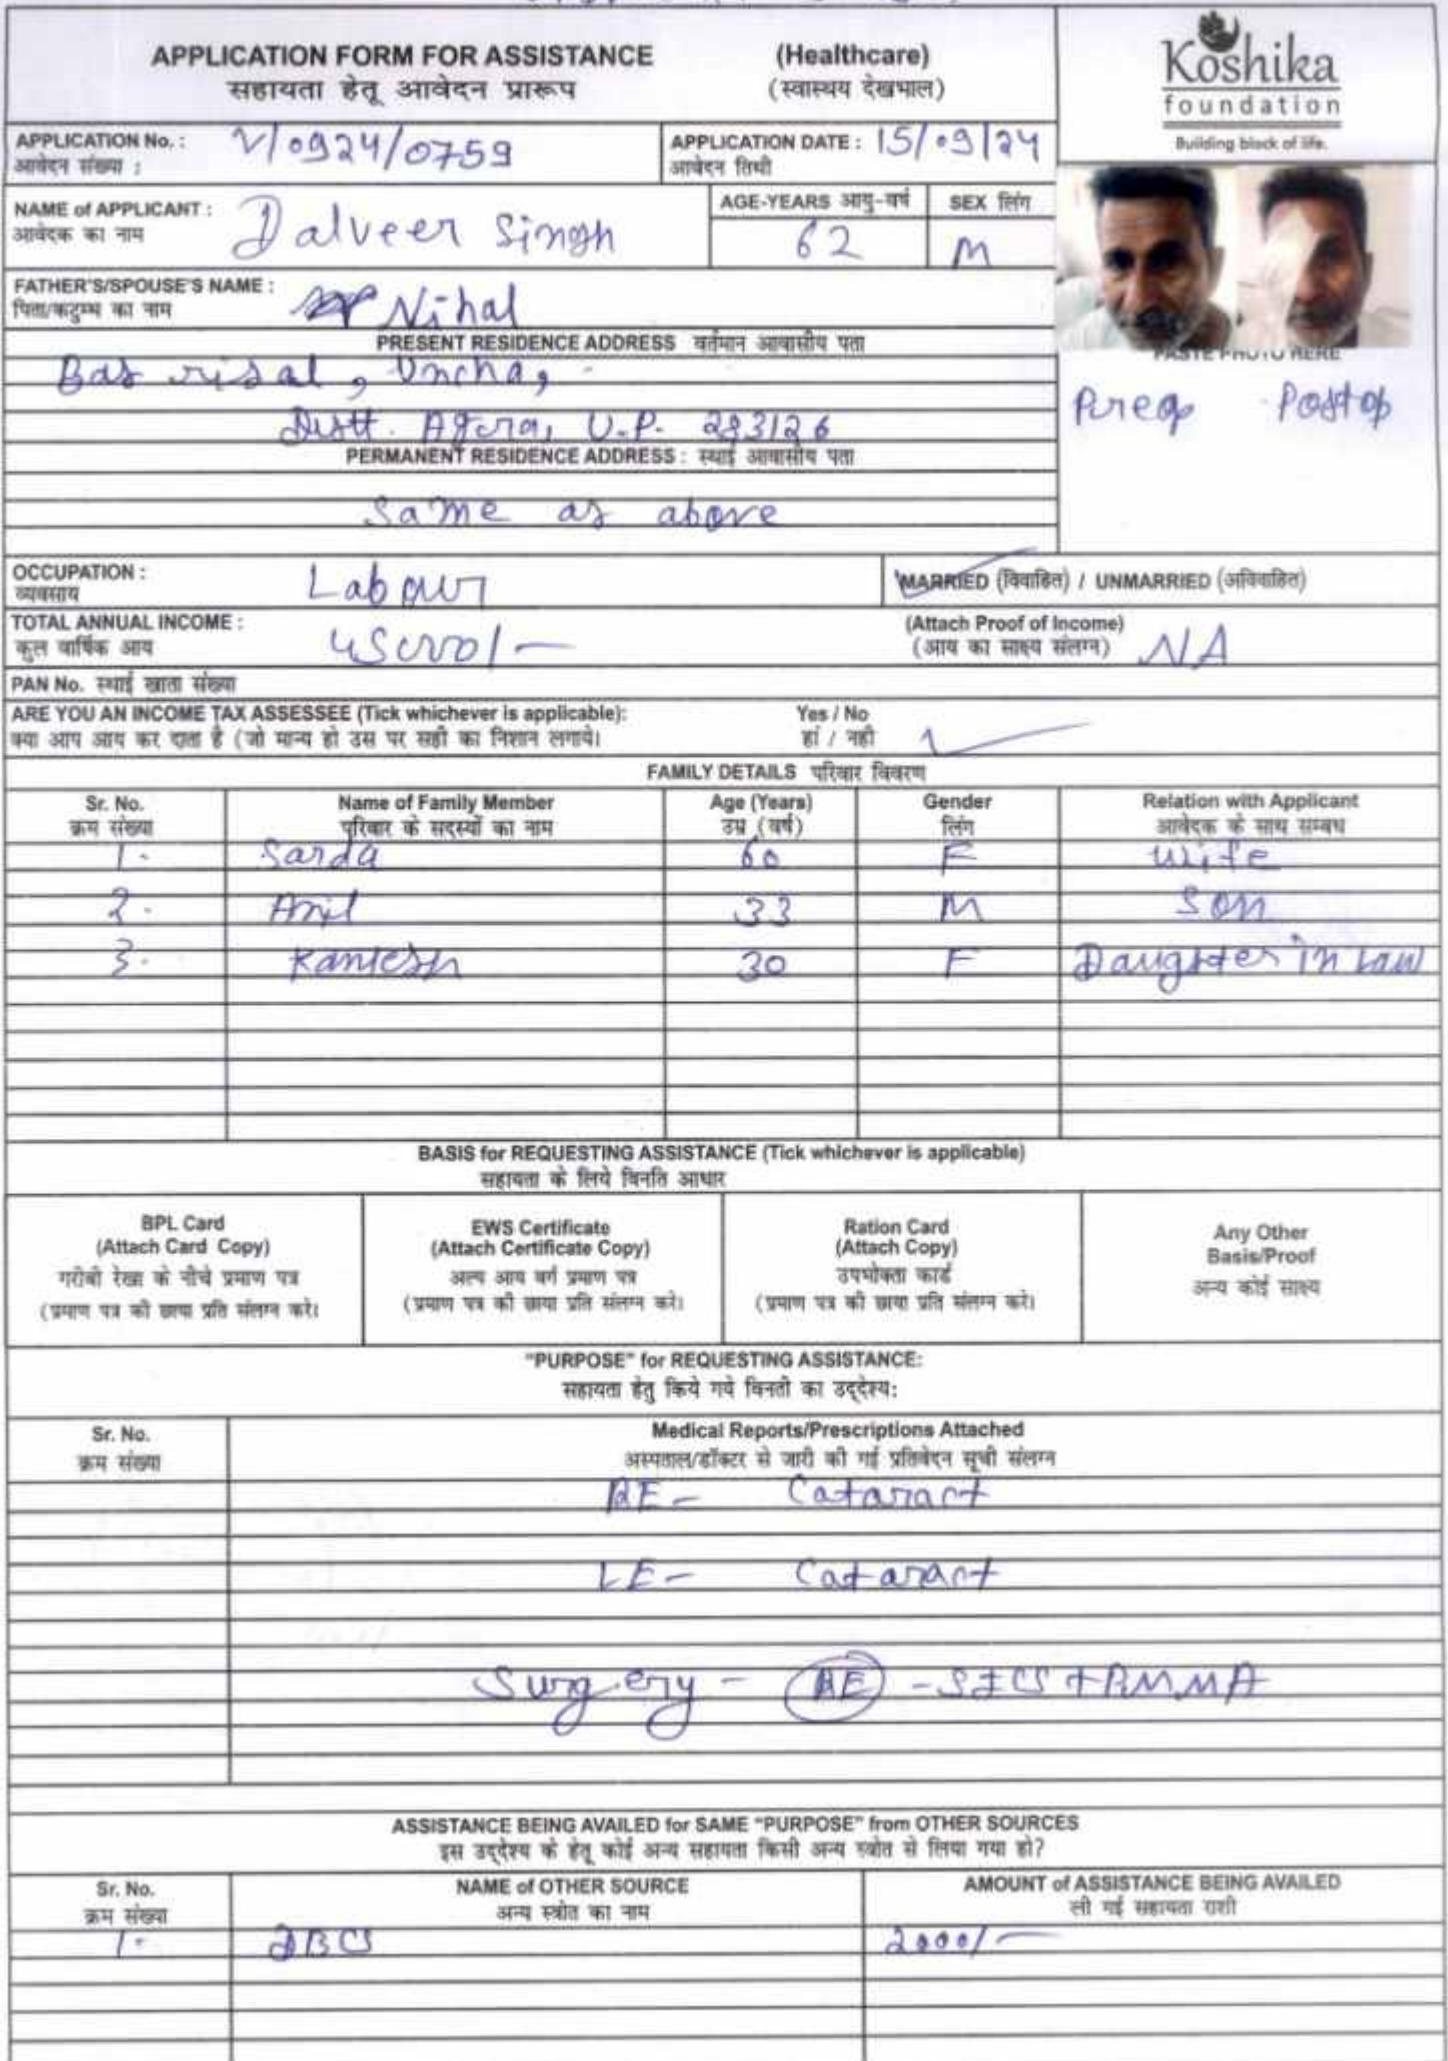 APPLICATION FORM FOR ASSISTANCE (Healthcare)
सहायता हेतू आवेदन प्रारूप (स्वास्थय देखभाल)
Koshika
foundation
Building block of life.
APPLICATION No. : V/0924/0759
आवेदन संख्या :
APPLICATION DATE : 15/09/24
आवेदन तिथी
NAME of APPLICANT : Dalveer Singh
आवेदक का नाम
AGE-YEARS आयु-वर्ष
62
SEX लिंग
M
FATHER'S/SPOUSE'S NAME : Nihal
पिता/कटुम्ब का नाम
PASTE PHOTO HERE
Preop Postop
PRESENT RESIDENCE ADDRESS वर्तमान आवासीय पता
Uncha,
Distt. Agra, U.P. 283126
PERMANENT RESIDENCE ADDRESS : स्थाई आवासीय पता
Same as above
OCCUPATION : Labour
व्यवसाय
MARRIED (विवाहित) / UNMARRIED (अविवाहित)
TOTAL ANNUAL INCOME :
कुल वार्षिक आय
(Attach Proof of Income) NA
(आय का साक्ष्य संलग्न)
PAN No. स्थाई खाता संख्या
ARE YOU AN INCOME TAX ASSESSEE (Tick whichever is applicable): Yes / No
क्या आप आय कर दाता है (जो मान्य हो उस पर सही का निशान लगाये। हां / नही
FAMILY DETAILS परिवार विवरण
Sr. No. Name of Family Member Age (Years) Gender Relation with Applicant
क्रम संख्या परिवार के सदस्यों का नाम उम्र (वर्ष) लिंग आवेदक के साथ सम्बध
1. Sarda 60 F Wife
2. Anil 33 M Son
3. 30 F Daughter in Law
BASIS for REQUESTING ASSISTANCE (Tick whichever is applicable)
सहायता के लिये विनति आधार
BPL Card
(Attach Card Copy)
गरीबी रेखा के नीचे प्रमाण पत्र
(प्रमाण पत्र की छाया प्रति संलग्न करे।
EWS Certificate
(Attach Certificate Copy)
अल्प आय वर्ग प्रमाण पत्र
(प्रमाण पत्र की छाया प्रति संलग्न करे।
Ration Card
(Attach Copy)
उपभोक्ता कार्ड
(प्रमाण पत्र की छाया प्रति संलग्न करे।
Any Other
Basis/Proof
अन्य कोई साक्ष्य
"PURPOSE" for REQUESTING ASSISTANCE:
सहायता हेतु किये गये विनती का उद्देश्य:
Sr. No. Medical Reports/Prescriptions Attached
क्रम संख्या अस्पताल/डॉक्टर से जारी की गई प्रतिवेदन सूची संलग्न
RE - Cataract
LE - Cataract
Surgery - RE - SICS + PMMA
ASSISTANCE BEING AVAILED for SAME "PURPOSE" from OTHER SOURCES
इस उद्देश्य के हेतू कोई अन्य सहायता किसी अन्य स्त्रोत से लिया गया हो?
Sr. No. NAME of OTHER SOURCE AMOUNT of ASSISTANCE BEING AVAILED
क्रम संख्या अन्य स्त्रोत का नाम ली गई सहायता राशी
1. DBCS 2000/-